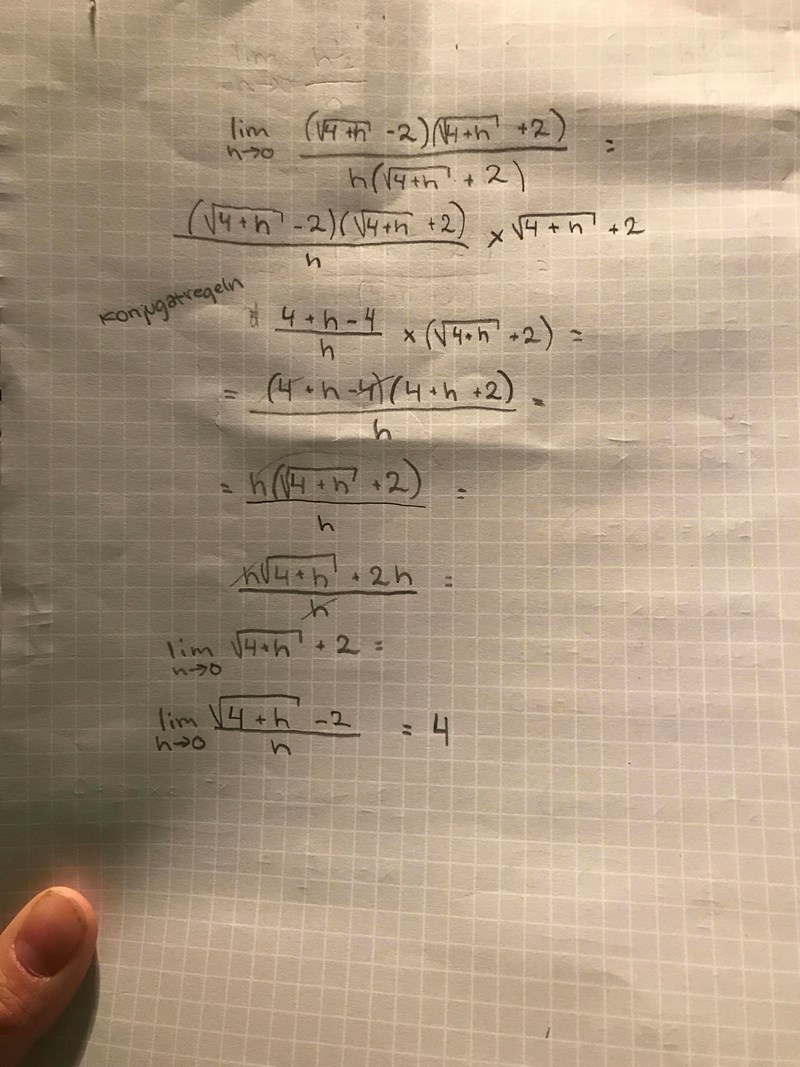 lim h→0 (√4+h -2)(√4+h +2) / h(√4+h + 2) =
(√4+h -2)(√4+h +2) / h × √4+h +2
Konjugatregeln
4+h-4 / h × (√4+h +2) =
= (4+h-4)(4+h+2) / h =
= h(√4+h +2) / h =
h√4+h + 2h / h =
lim h→0 √4+h + 2 =
lim h→0 √4+h -2 / h = 4